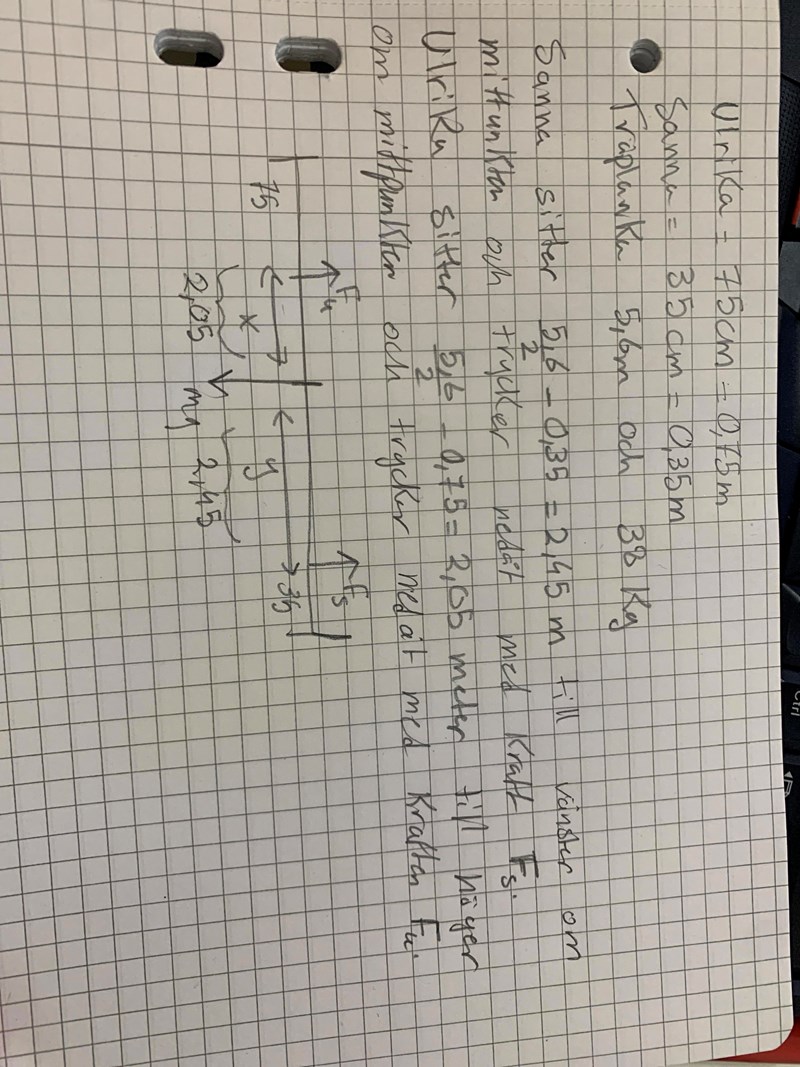 Ulrika = 75cm = 0,75m
Sanna = 35cm = 0,35m
Träplanka 5,6m och 38 Kg
Sanna sitter 5,6/2 - 0,35 = 2,45 m till vänster om
mittunkten och trycker nedåt med Kraft Fs.
Ulrika sitter 5,6/2 - 0,75 = 2,05 meter till höger
om mittpunkten och trycker nedåt med Kraften Fu.
Fu Fs
75 x y 35
2,05 mg 2,45
Ctrl